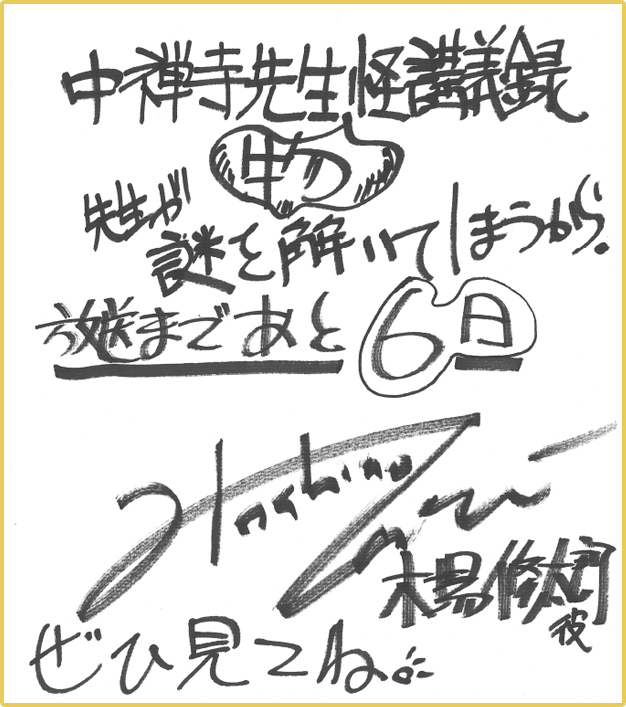 中禅寺先生怪講義録
物
先生が
謎を解いてしまうから。
放送まであと6日
Hoshino
木場修太郎役
ぜひ見てね